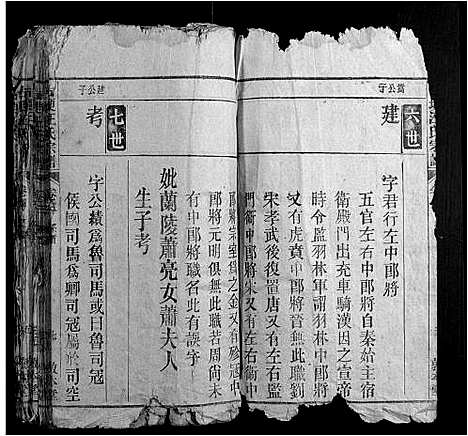 六世
建
字君行左中郎將
五官左右中郎將自秦始主宿
衛殿門出充車騎漢因之宣帝
時令監羽林軍謂羽林中郎將
又有虎賁中郎將晉無此職劉
宋孝武後復置唐又有左右監
門衛中郎將宋又有左右衛中
郎將元明俱無此職若周尚未
有中郎將職名此有誤字
妣蘭陵蕭亮女蕭夫人
生子考
建公子
七世
考
字公績為魯司馬或曰魯司寇
侯國司馬為卿司寇屬於司空